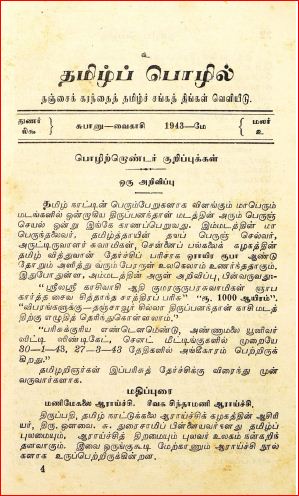 உ
தமிழ்ப் பொழில்
நஞ்சைக் கரந்தைத் தமிழ்ச் சங்கத் திங்கள் வெளியீடு.
துணர்
சுபானு—வைகாசி 1943—மே
மலர்
உ
பொழிற்றொண்டர் குறிப்புக்கள்
ஒரு அறிவிப்பு
தமிழ் கரட்டின் பெரும்பேறுகளாக விளங்கும் மாபெரும்
மடங்களில் ஒன்றாகிய திருப்பனந்தாள் மடத்தின் அரும் பெருஞ்
செயல் ஒன்று இங்கே காணப்பெறுவது. இம்மடத்தின் மா
பெருந்தலைவர், தமிழ்த்தாயின் தயப் பெருஞ் செல்வர்,
அருட்டிருவாளர் சுவாமிகள், சென்னைப் பல்கலைக் கழகத்தின்
தமிழ் வித்துவான் தேர்ச்சிப் பரிசாக ஓராயிர ரூபா ஆண்டு
தோறும் அளித்து வரும் பேரருள் உலகெலாம் உணர்ந்ததாகும்.
இதுபோதுள்ள, அம்மடத்தின் அருள் அறிவிப்பு, பின்வருவது:—
"ஸ்ரீலஸ்ரீ காசிவாசி ஆதி குமரகுருபரசுவாமிகள் ஞாப
கார்த்த சைவ சித்தாந்த சாத்திரப் பரிசு" "ரூ. 1000 ஆயிரம்".
"விபரங்களுக்கு—தஞ்சாவூர் ஜில்லா திருப்பனந்தாள் காசி மடத்
திற்கு எழுதித் தெரிந்துகொள்ளலாம்."
"பரிசுக்குரிய எண்டௌமெண்டு, அண்ணாமலை யூனிவர்
ஸிட்டி ஸிண்டிகேட், செனட் மீட்டிங்குகளில் முறையே
30—1—43, 27—3—43 தேதிகளில் அங்கீகாரம் பெற்றிருக்
கிறது."
தமிழறிஞர்கள் இப்பரிசுத் தேர்ச்சிக்கு விரைந்து முன்
வருவார்களாக.
மதிப்புரை
மணிமேகலை ஆராய்ச்சி. சீவக சிந்தாமணி ஆராய்ச்சி.
திருப்பதி, தமிழ் கரட்டுக்கலை ஆராய்ச்சிக் கழகத்தின் ஆசிரி
யர், திரு. ஔவை. சு. துரைசாமிப் பிள்ளையவர்களது தமிழ்ப்
புலமையும், ஆராய்ச்சித் திறமையும் புலவர் உலகம் நன்கறிந்
தனவாகும். இவை ஒருங்கு கூடி மேற்காணும் ஆராய்ச்சி நூல்
களாக உருப்பெற்றிருக்கின்றன.
4